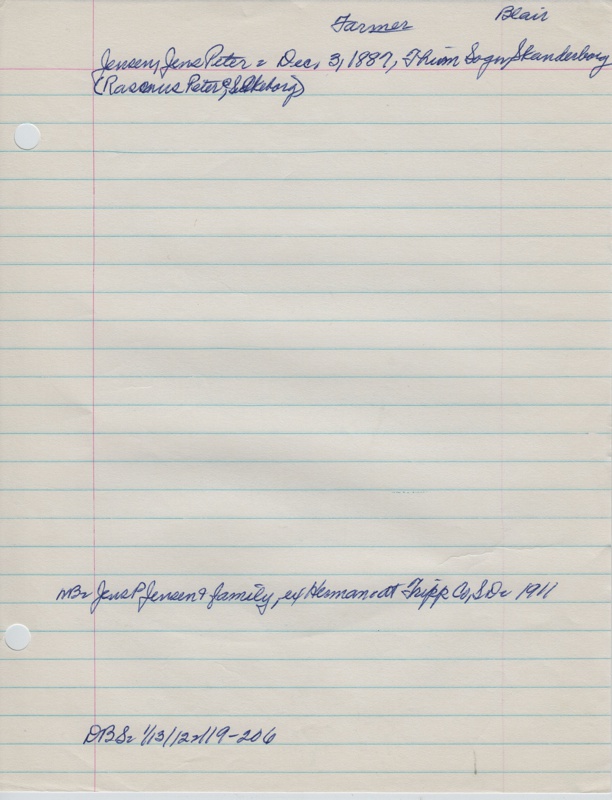 Farmer Blair
Jensen, Jens Peter = Dec. 3, 1887, Sogn, Skanderborg
(Rasmus Peter
MB= Jens P Jensen & family, ex Herman at Tripp Co, SD= 1911
DBS= 1/13/12=/19-206